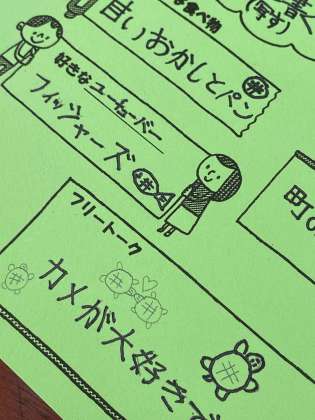 書く
(写す)
な食べ物
甘いおかしとパン
好きなユーチューバー
フィッシャーズ
町の
フリートーク
カメが大好きで